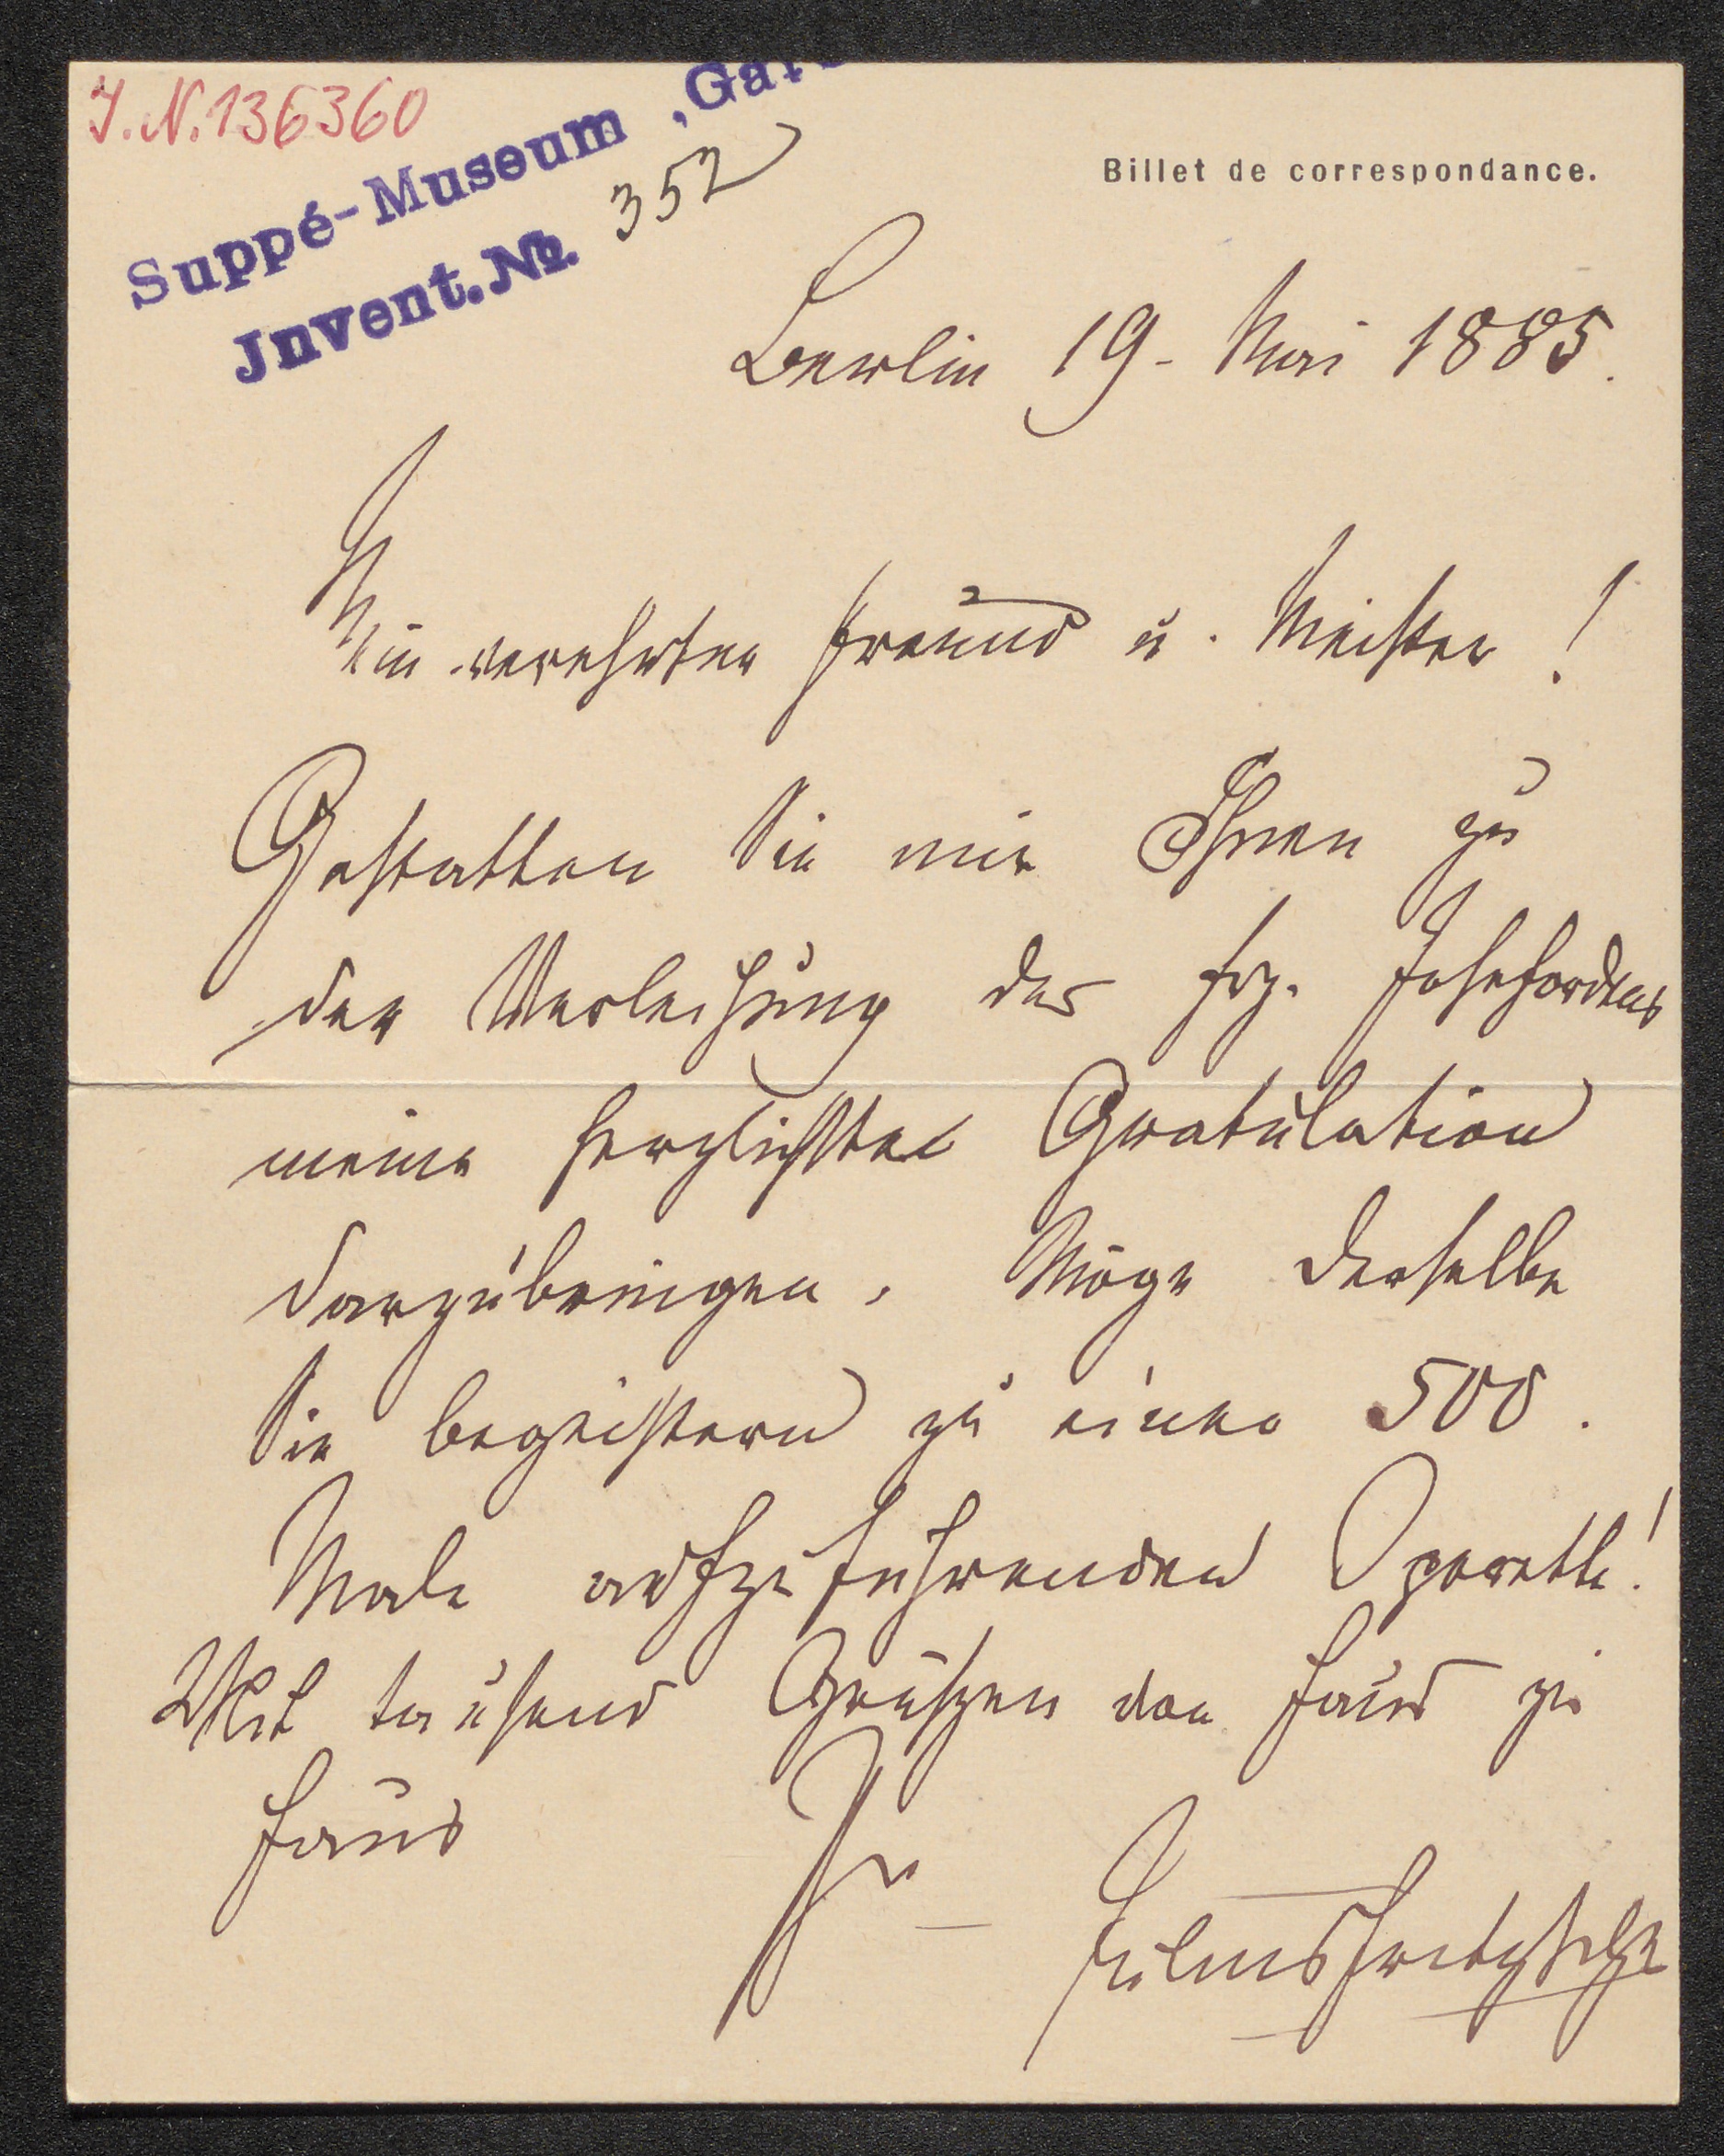 I.N. 136360
Suppé-Museum „Gars
Invent. No. 352
Billet de correspondance.
Berlin 19. Mai 1885.
Mein verehrter Freund u. Meister!
Gestatten Sie mir Ihnen zu
der Verleihung des Frz. Josefordens
meine herzlichsten Gratulation
darzubringen. Möge derselbe
Sie begeistern zu einer 500.
Male aufzuführenden Operette!
Mit tausend Grüßen von Haus zu
Haus Ihr
Julius Fritzsche